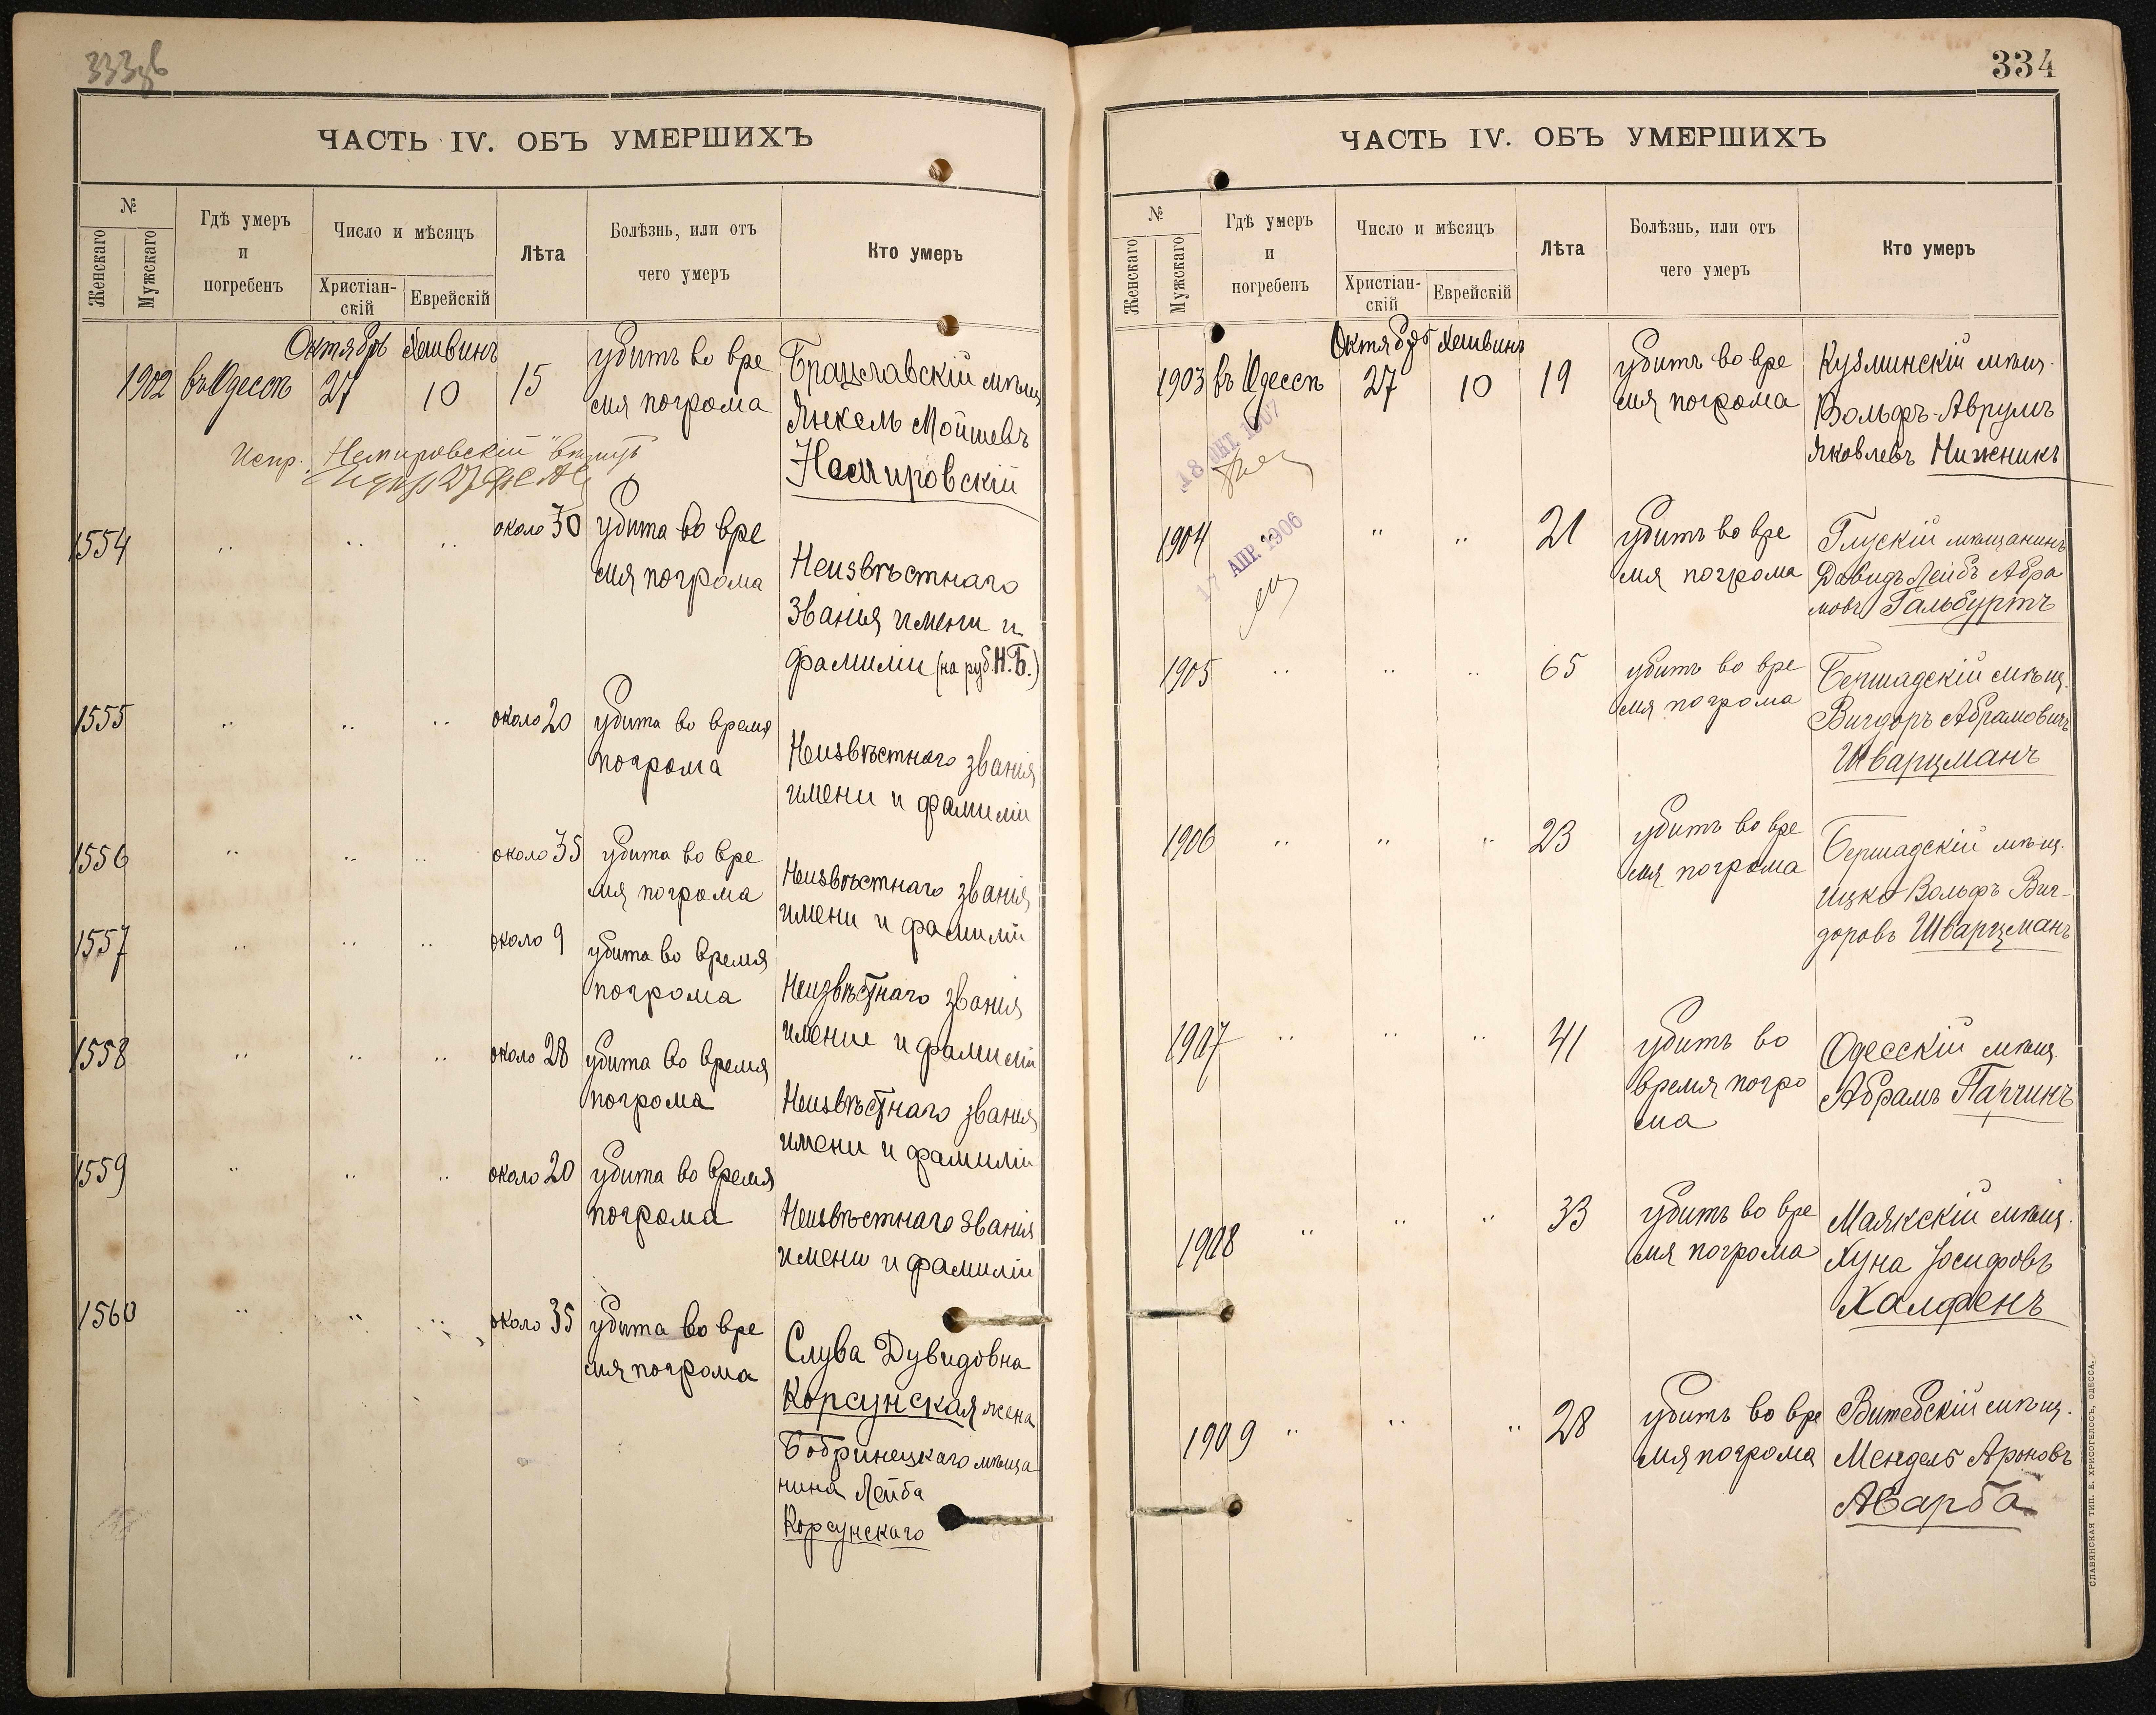 333об
ЧАСТЬ IV. ОБЪ УМЕРШИХЪ
№
Женскаго
Мужскаго
Гдѣ умеръ
и
погребенъ
Число и мѣсяцъ
Христіан-
скій
Еврейскій
Лѣта
Болѣзнь, или отъ
чего умеръ
Кто умеръ
Октябрь Хешвинъ
1902 въ Одессѣ 27 10 15 убитъ во вре
мя погрома
Брацславскій мѣщ.
Янкель Мойшевъ
Немировскій
Испр. "Немировскій"
1554 " " " около 30 убита во вре
мя погрома
Неизвѣстнаго
званія имени и
фамиліи (на руб. Н.Б.)
1555 " " " около 20 убита во время
погрома
Неизвѣстнаго званія
имени и фамиліи
1556 " " " около 35 убита во вре
мя погрома
Неизвѣстнаго званія
имени и фамиліи
1557 " " " около 9 убита во время
погрома
Неизвѣстнаго званія
имение и фамиліи
1558 " " " около 28 убита во время
погрома
Неизвѣстнаго званія
имени и фамиліи
1559 " " " около 20 убита во время
погрома
Неизвѣстнаго званія
имени и фамиліи
1560 " " " около 35 убита во вре
мя погрома
Слува Дувидовна
Корсунская жена
Бобринецкаго мѣща
нина Лейба
Корсунскаго
334
ЧАСТЬ IV. ОБЪ УМЕРШИХЪ
№
Женскаго
Мужскаго
Гдѣ умеръ
и
погребенъ
Число и мѣсяцъ
Христіан-
скій
Еврейскій
Лѣта
Болѣзнь, или отъ
чего умеръ
Кто умеръ
Октябрь Хешвинъ
1903 въ Одессѣ 27 10 19 убитъ во вре
мя погрома
Кузминскій мѣщ.
Вольфъ-Аврумъ
Яковлевъ Нижникъ
18 ОКТ. 1907
1904 " " " 21 убитъ во вре
мя погрома
Глускій мѣщанинъ
Давидъ Лейбъ Абра
мовъ Гальбуртъ
17 АПР. 1906
1905 " " " 65 убитъ во вре
мя погрома
Бершадскій мѣщ.
Вигдоръ Абрамовичъ
Шварцманъ
1906 " " " 23 убитъ во вре
мя погрома
Бершадскій мѣщ.
Ицко Вольфъ Виг-
доровъ Шварцманъ
1907 " " " 41 убитъ во
время погро
ма
Одесскій мѣщ.
Абрамъ Папчинъ
1908 " " " 33 убитъ во вре
мя погрома
Маякскій мѣщ.
Хуна Іосифовъ
Халфенъ
1909 " " " 28 убитъ во вре
мя погрома
Витебскій мѣщ.
Мендель Ароновъ
Аварба
СЛАВЯНСКАЯ ТИП. Е. ХРИСОГЕЛОСЪ, ОДЕССА.